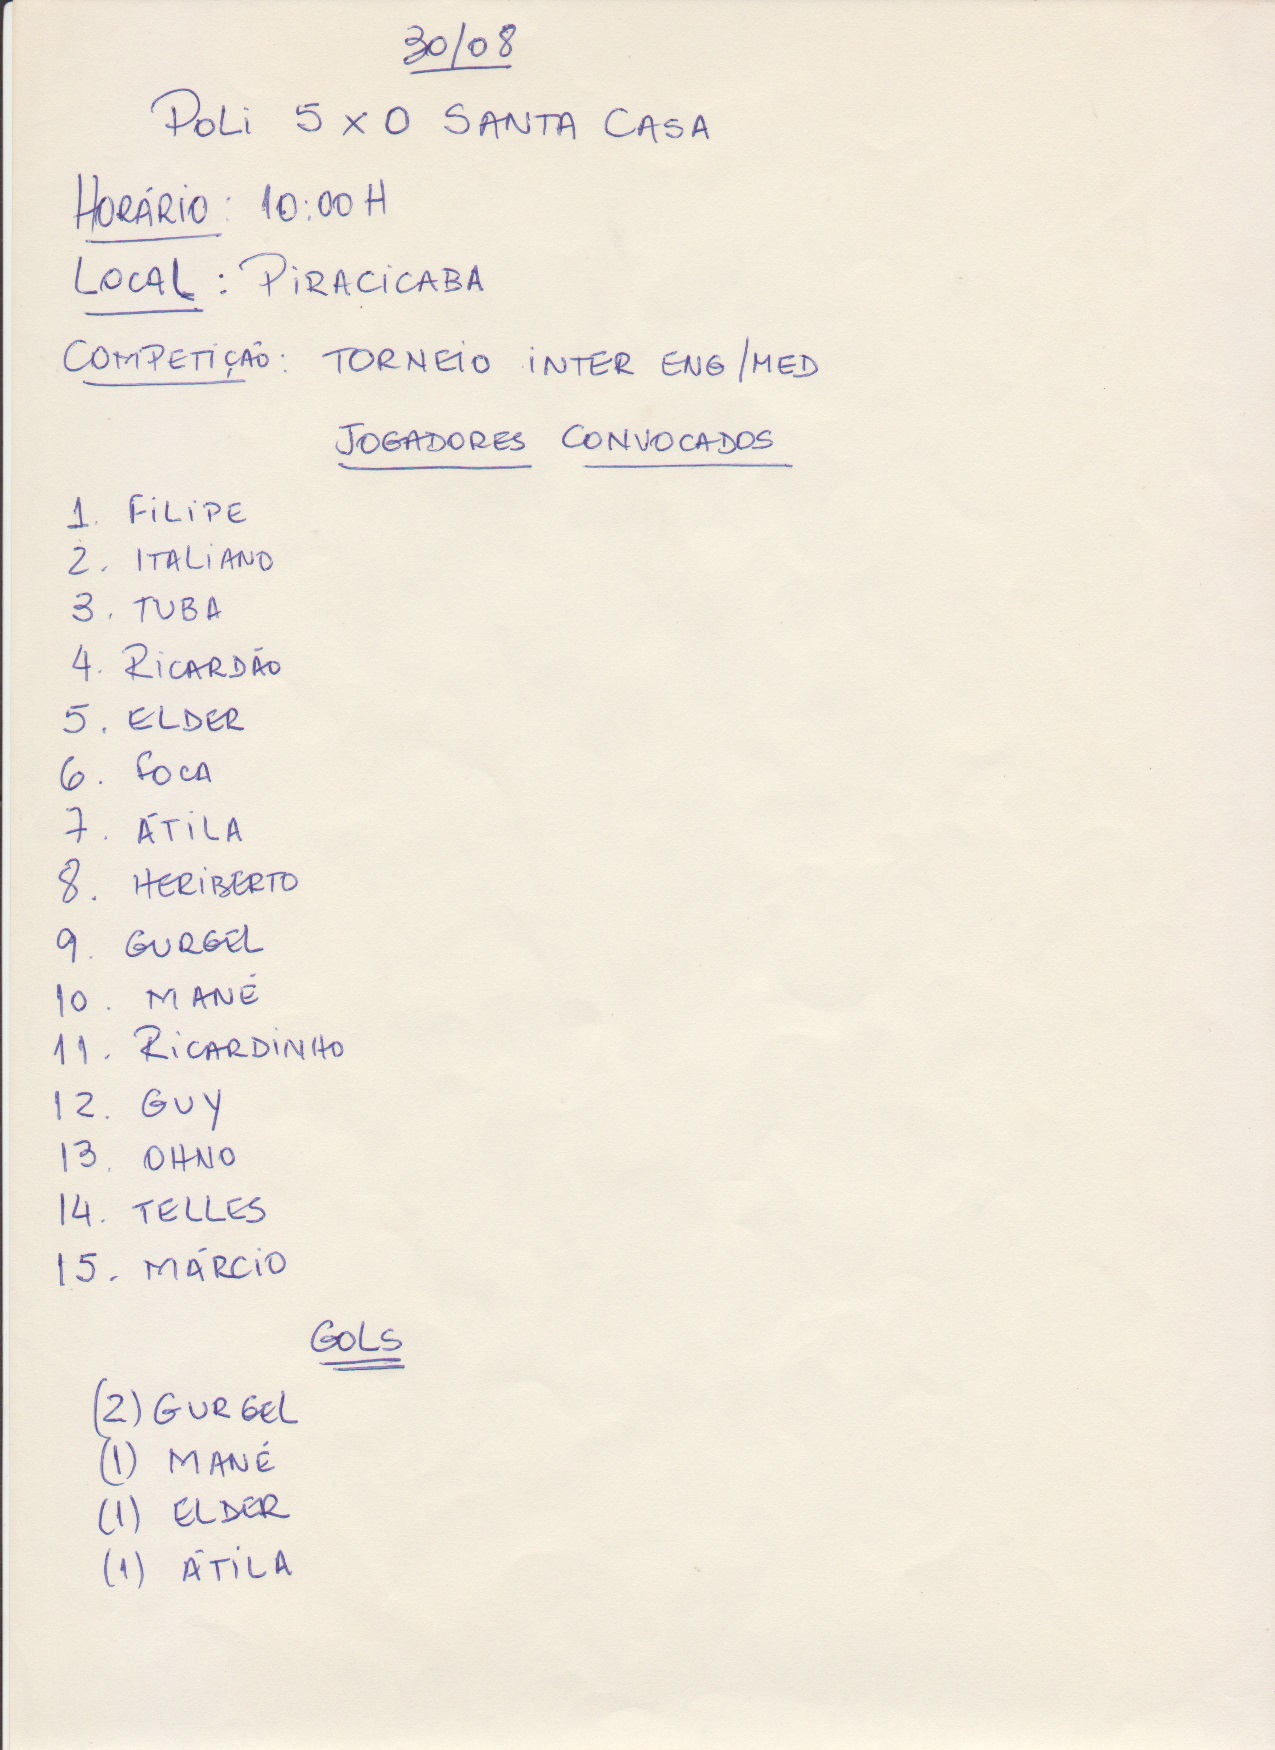 30/08
POLI 5 X 0 SANTA CASA
HORÁRIO: 10:00 H
LOCAL: PIRACICABA
COMPETIÇÃO: TORNEIO INTER ENG/MED
JOGADORES CONVOCADOS
1. FILIPE
2. ITALIANO
3. TUBA
4. RICARDÃO
5. ELDER
6. FOCA
7. ÁTILA
8. HERIBERTO
9. GURGEL
10. MANÉ
11. RICARDINHO
12. GUY
13. OHNO
14. TELLES
15. MÁRCIO
GOLS
(2) GURGEL
(1) MANÉ
(1) ELDER
(1) ÁTILA